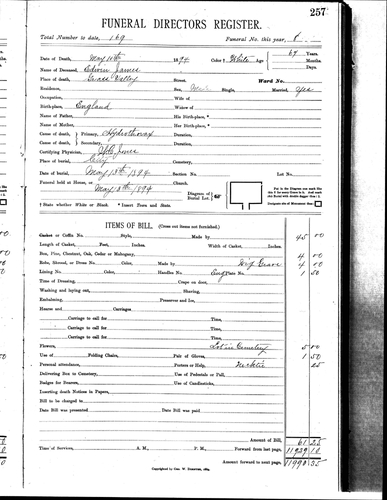 257
FUNERAL DIRECTORS REGISTER.
Total Number to date, 169 Funeral No. this year, 8
Date of Death, May 10th 1894 Color † White Age 67 Years. Months. Days.
Name of Deceased, Edwin James
Grass Valley Street. Ward No.
Residence, Sex, Single, Married, Yes
Occupation, Wife of
Birth-place, England Widow of
Name of Father, His Birth-place, *
Name of Mother, Her Birth-place, *
Cause of death, Primary, Hydrothorax Duration,
Cause of death, Secondary, Duration,
Certifying Physician, Jones
Place of burial, City Cemetery,
Date of burial, May 13th 1894 Section No. Lot No.
Funeral held at House, or Church.
May 13th 1894 Diagram of Burial Lot,
† State whether White or Black. * Insert Town and State.
ITEMS OF BILL. (Cross out items not furnished.)
Casket or Coffin No. Style, 45 00
Length of Casket, Feet, Inches. Width of Casket, Inches.
Box, Pine, Chestnut, Oak, Cedar or Mahogany, 4 00
Robe, Shroud, or Dress No. Color, Made by 4 00
Lining No. Color, Handles No. Eng Plate No. 1 50
Time of Dressing, Crape on door,
Washing and laying out, Shaving,
Embalming, Preserve and Ice,
Hearse and Carriages
Carriage to call for Time,
Carriage to call for Time,
Carriage to call for Time,
Flowers, Lot in Cemetery 5 00
Use of Folding Chairs, Pair of Gloves, 1 50
Personal attendance, Porters or Help, Necktie 25
Delivering Box to Cemetery, Use of Pedestals or Pall,
Badges for Bearers, Use of Candlesticks,
Inserting death Notices in Papers,
Bill to be charged to
Date Bill was presented Date Bill was paid
Amount of Bill, 61 25
Time of Services, A. M., P. M., Forward from last page,
Amount forward to next page,